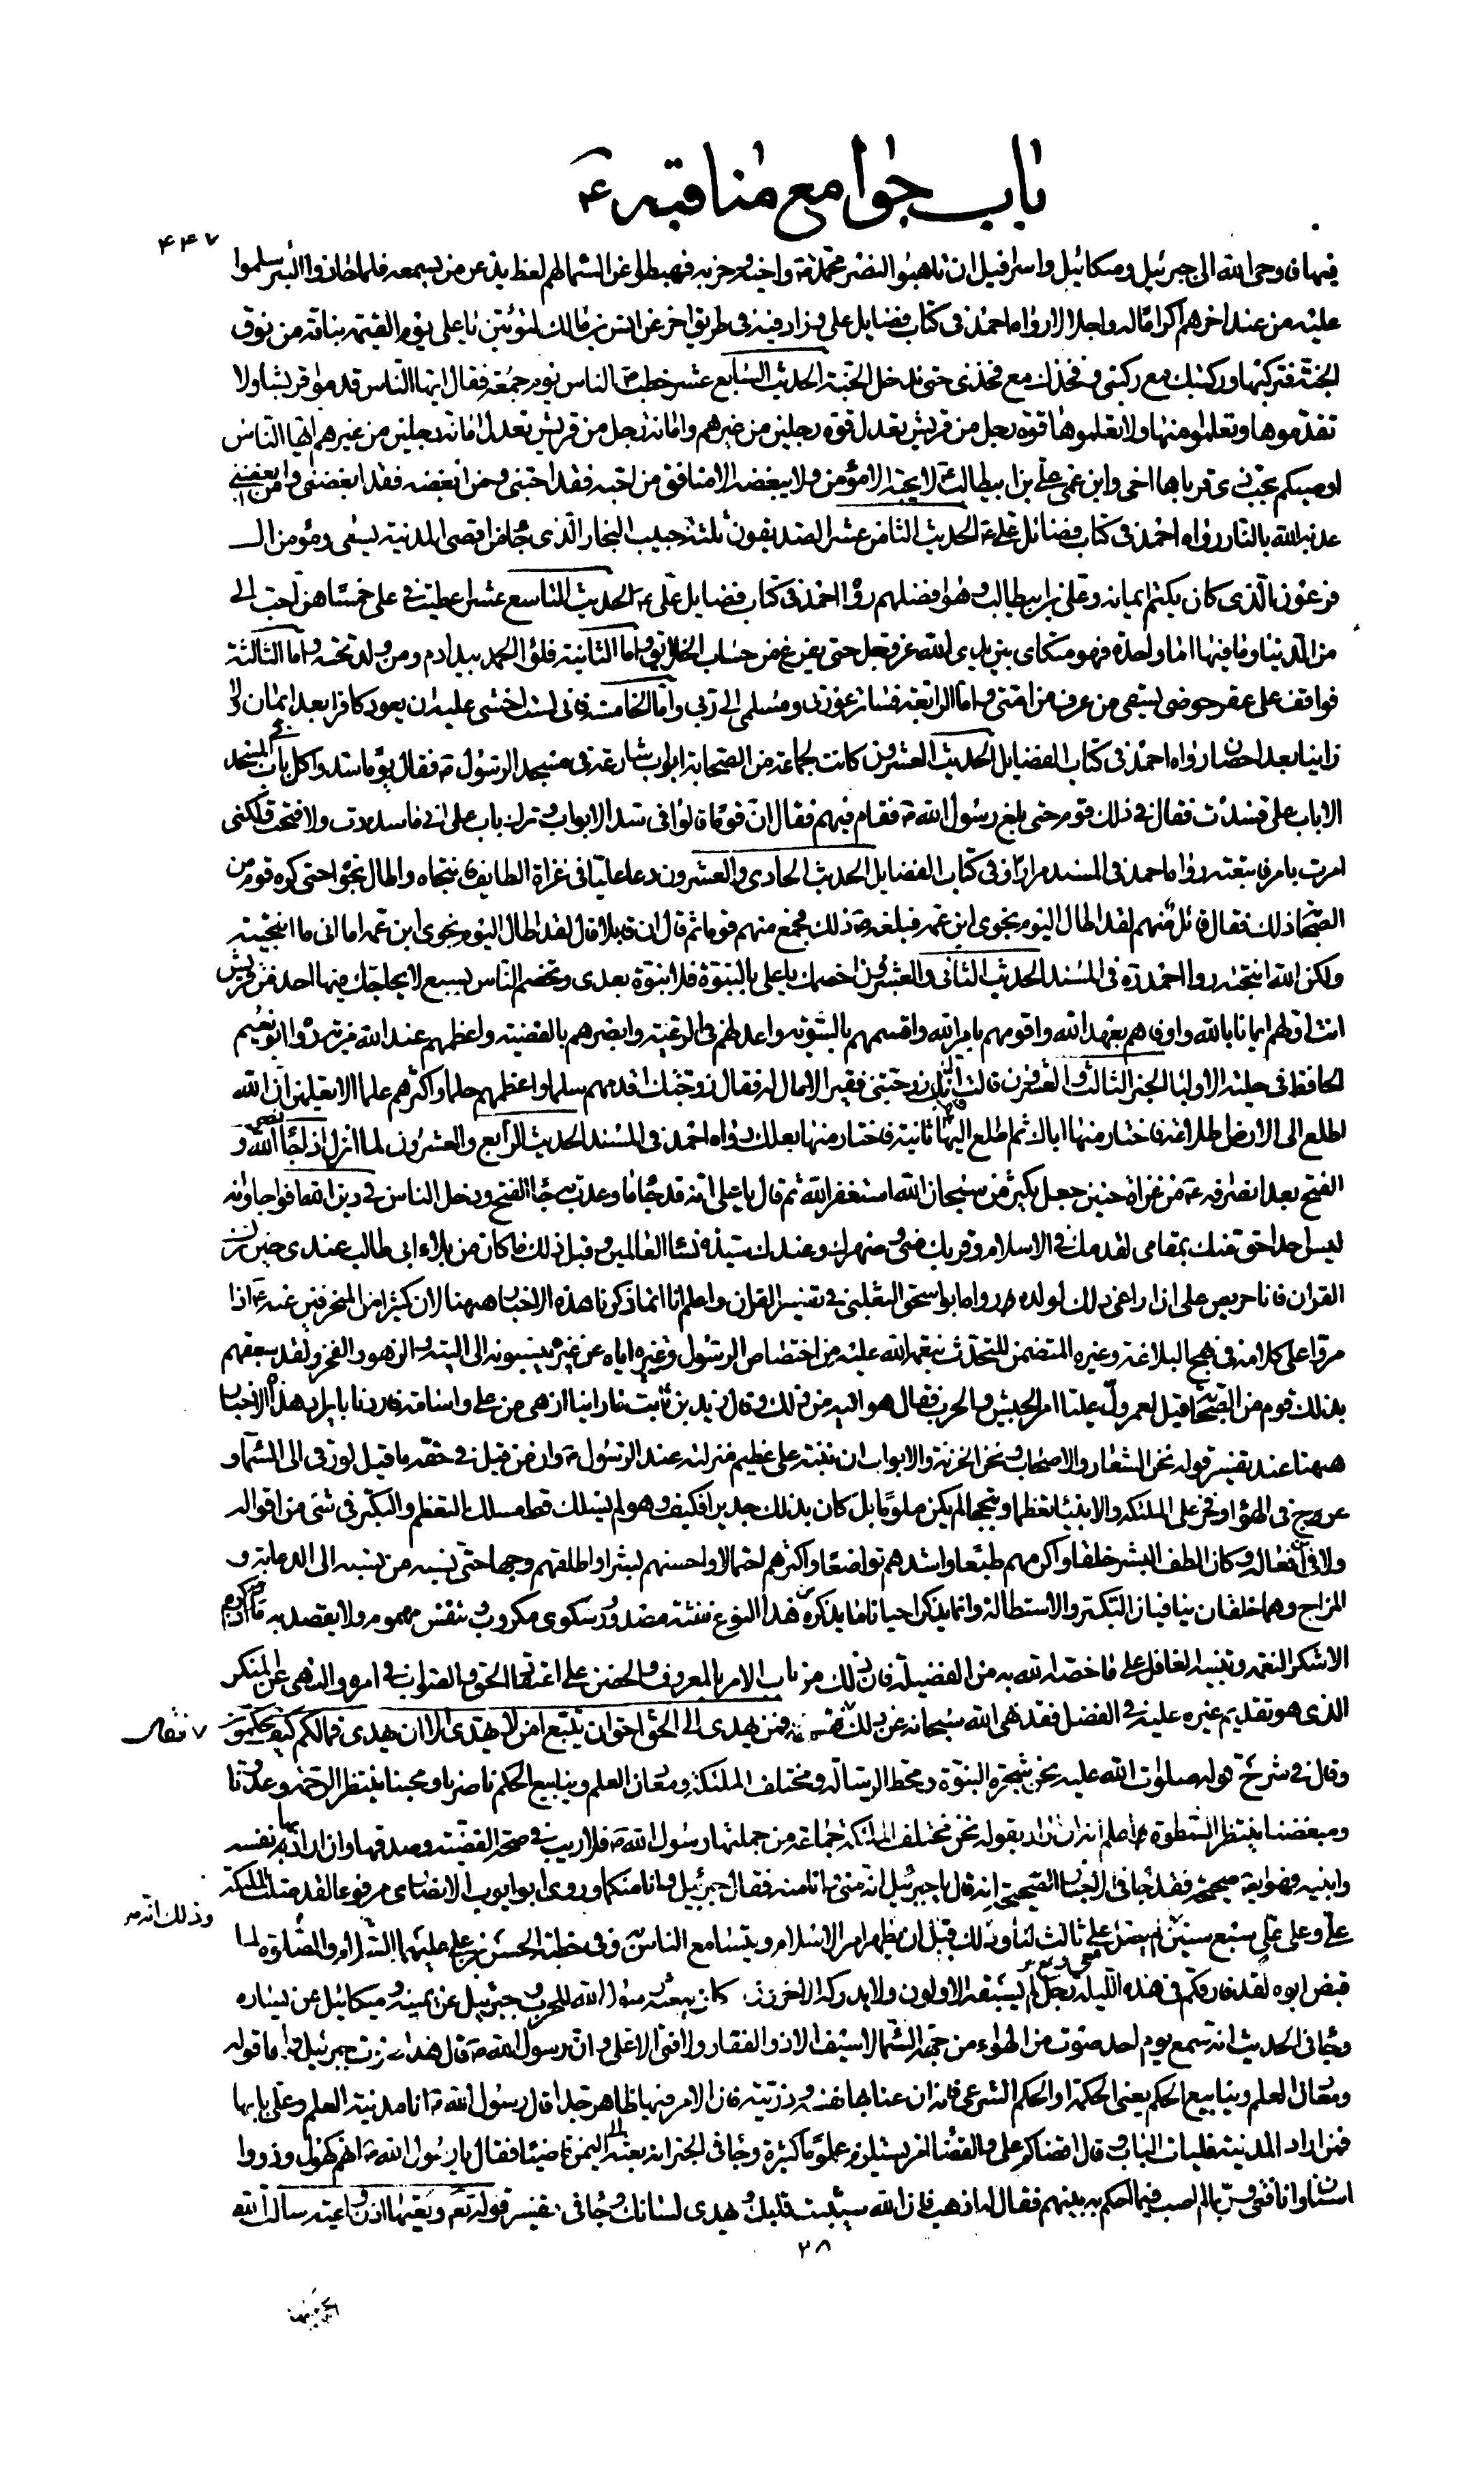 باب جوامع مناقبه ع
۴۴۷
فيها فاوحى الله الى جبرئيل وميكائيل واسرافيل ان تاهبوا لنصر محمد ص واخيه وحزبه فهبطوا عن السماء لهم لغط يذعر من يسمعه فلما حاذوا البئر سلموا
عليه من عند اخرهم اكراما له واجلالا رواه احمد في كتاب فضايل على وزاد فيه في طريق اخر عن انس بن مالك لتؤتين يا على يوم القيمة بناقة من نوق
الجنة فتركبها وركبتك مع ركبتي وفخذك مع فخذي حتى تدخل الجنة الحديث السابع عشر خطب ص الناس يوم جمعة فقال ايها الناس قدموا قريشا ولا
تقدموها وتعلموا منها ولا تعلموها قوة رجل من قريش تعدل قوة رجلين من غيرهم وامانة رجل من قريش تعدل امانة رجلين من غيرهم ايها الناس
اوصيكم بحب ذى قرباها اخى وابن عمى على بن ابيطالب ع لا يحبه الا مؤمن ولا يبغضه الا منافق من احبه فقد احبنى ومن ابغضه فقد ابغضنى ومن ابغضنى
عذبه الله بالنار رواه احمد في كتاب فضائل على ع الحديث الثامن عشر الصديقون ثلثة حبيب النجار الذى جاء من اقصى المدينة يسعى ومؤمن ال
فرعون الذى كان يكتم ايمانه وعلى بن ابيطالب وهو افضلهم رواه احمد في كتاب فضايل على ع الحديث التاسع عشر اعطيت في على خمسا هن احب الى
من الدنيا وما فيها اما واحدة فهو متكاى بين يدى الله عز وجل حتى يفرغ من حساب الخلايق واما الثانية فلواء الحمد بيده ادم ومن ولد تحته واما الثالثة
فواقف على عقر حوضى يسقى من عرف من امتى واما الرابعة فساتر عورتى ومسلمى الى ربى واما الخامسة فانى لست اخشى عليه ان يعود كافرا بعد ايمان ولا
زانيا بعد احصان رواه احمد في كتاب الفضايل الحديث العشرون كانت لجماعة من الصحابة ابواب شارعة في مسجد الرسول ص فقال يوما سدوا كل باب في المسجد
الا باب على فسدت فقال في ذلك قوم حتى بلغ رسول الله ص فقام فيهم فقال ان قوما قالوا في سد الابواب وترك باب على انى ما سددت ولا فتحت ولكنى
امرت بامر فاتبعته رواه احمد في المسند مرارا وفي كتاب الفضايل الحديث الحادى والعشرون دعا عليا في غزاة الطايف فانتجاه واطال نجواه حتى كره قوم من
الصحابة ذلك فقال قائل منهم لقد اطال اليوم نجوى ابن عمه فبلغه ص ذلك فجمع منهم قوما ثم قال ان قائلا قال لقد اطال اليوم نجوى ابن عمه اما انى ما انتجيته
ولكن الله انتجاه رواه احمد ره في المسند الحديث الثانى والعشرون اخصمك يا على بالنبوة فلا نبوة بعدى وتخصم الناس بسبع لا يحاجك فيها احد من قريش
انت اولهم ايمانا بالله واوفاهم بعهد الله واقومهم بامر الله واقسمهم بالسوية واعدلهم في الرعية وابصرهم بالقضية واعظمهم عند الله مزية رواه ابو نعيم
الحافظ في حلية الاوليا الخبر الثالث والعشرون قالت فاطمة انك زوجتنى فقيرا لا مال له فقال زوجتك اقدمهم سلما واعظمهم حلما واكثرهم علما الا تعلمين ان الله
اطلع الى الارض اطلاعة فاختار منها اباك ثم اطلع اليها ثانية فاختار منها بعلك رواه احمد في المسند الحديث الرابع والعشرون لما انزل اذا جاء نصر الله و
الفتح بعد انصرافه ع من غزاة حنين جعل يكثر من سبحان الله استغفر الله ثم قال يا على انه قد جاء ما وعدت به جاء الفتح ودخل الناس في دين الله افواجا وانه
ليس احد احق منك بمقامى لقدمك في الاسلام وقربك منى وصهرك وعندك سيدة نساء العالمين وقبل ذلك ما كان من بلاء ابى طالب عندى حين نزل
القران فانا حريص على ان اراعى ذلك لولده رواه ابو اسحق الثعلبى في تفسير القران واعلم انا انما ذكرنا هذه الاخبار ههنا لان كثيرا من المنحرفين عنه ع اذا
مروا على كلامه في نهج البلاغة وغيره المتضمن للتحدث بنعمة الله عليه من اختصاص الرسول ص وتميزه اياه عن غيره ينسبونه الى التيه والزهو والفخر ولقد سبقهم
بذلك قوم من الصحابة قيل لعمر ول عليا امر الجيش والحرب فقال هو اتيه من ذلك وقال زيد بن ثابت ما راينا ازهى من على واسامة فاردنا بايراد هذه الاخبار
ههنا عند تفسير قوله نحن الشعار والاصحاب ونحن الخزنة والابواب ان ننبه على عظيم منزلته عند الرسول ص وان من قيل في حقه ما قيل لو رقى الى السماء و
عرج في الهواء وفخر على الملئكة والانبياء تعظما وتبجحا لم يكن ملوما بل كان بذلك جديرا فكيف وهو لم يسلك قط مسلك التعظم والتكبر في شئ من اقواله
ولا في افعاله وكان الطف البشر خلقا واكرمهم طبعا واشدهم تواضعا واكثرهم احتمالا واحسنهم بشرا واطلقهم وجها حتى نسبه من نسبه الى الدعابة و
المزاح وهما خلقان ينافيان التكبر والاستطالة وانما يذكر احيانا ما يذكره من هذا النوع نفثة مصدور وشكوى مكروب وتنفس مهموم ولا يقصد به اذا ذكره
الا شكر النعمة وتنبيه الغافل على ما خصه الله به من الفضيلة فان ذلك من باب الامر بالمعروف والحض على اعتقاد الحق والصواب في امره والنهى عن المنكر
الذى هو تقديم غيره عليه في الفضل فقد نهى الله سبحانه عن ذلك فقال افمن يهدى الى الحق احق ان يتبع امن لا يهدى الا ان يهدى فما لكم كيف تحكمون
وقال في شرح قوله صلوات الله عليه نحن شجرة النبوة ومحط الرسالة ومختلف الملئكة ومعادن العلم وينابيع الحكم ناصرنا ومحبنا ينتظر الرحمة وعدونا
ومبغضنا ينتظر السطوة اعلم انه ان اراد بقوله نحن مختلف الملئكة جماعة من جملتها رسول الله ص فلا ريب في صحة القضية وصدقها وان اراد بها نفسه
وابنيه فهى ايضا صحيحة فقد جاء في الاخبار الصحيحة انه قال يا جبرئيل انه منى وانا منه فقال جبرئيل وانا منكما وروى ابو ايوب الانصارى مرفوعا لقد صلت الملئكة
وذلك انه
على وعلى على سبع سنين لم يصل على ثالث لنا وذلك قبل ان يظهر امر الاسلام ويتسامع الناس به وفي خطبة الحسن بن على عليهما السلام والصلوة لما
قبض ابوه لقد فارقكم في هذه الليلة رجل لم يسبقه الاولون ولا يدركه الاخرون كان يبعثه رسول الله للحرب وجبرئيل عن يمينه وميكائيل عن يساره
وجاء في الحديث انه سمع يوم احد صوت من الهواء من جهة السماء لا سيف الا ذو الفقار ولا فتى الا على وان رسول الله ص قال هذا صوت جبرئيل واما قوله
ومعادن العلم وينابيع الحكم يعنى الحكمة او الحكم الشرعى فانه ان عنا بها نفسه وذريته فان الامر فيها ظاهر جدا قال رسول الله ص انا مدينة العلم وعلى بابها
فمن اراد المدينة فليات الباب وقال اقضاكم على والقضاء امر يستلزم علوما كثيرة وجاء في الخبر انه بعثه الى اليمن قاضيا فقال يا رسول الله ص انهم كهول وذووا
اسنان وانا فتى وربما لم اصب فيما احكم به بينهم فقال له اذهب فان الله سيثبت قلبك ويهدى لسانك وجاء في تفسير قوله تعالى وتعيها اذن واعية سالت الله
۲۸